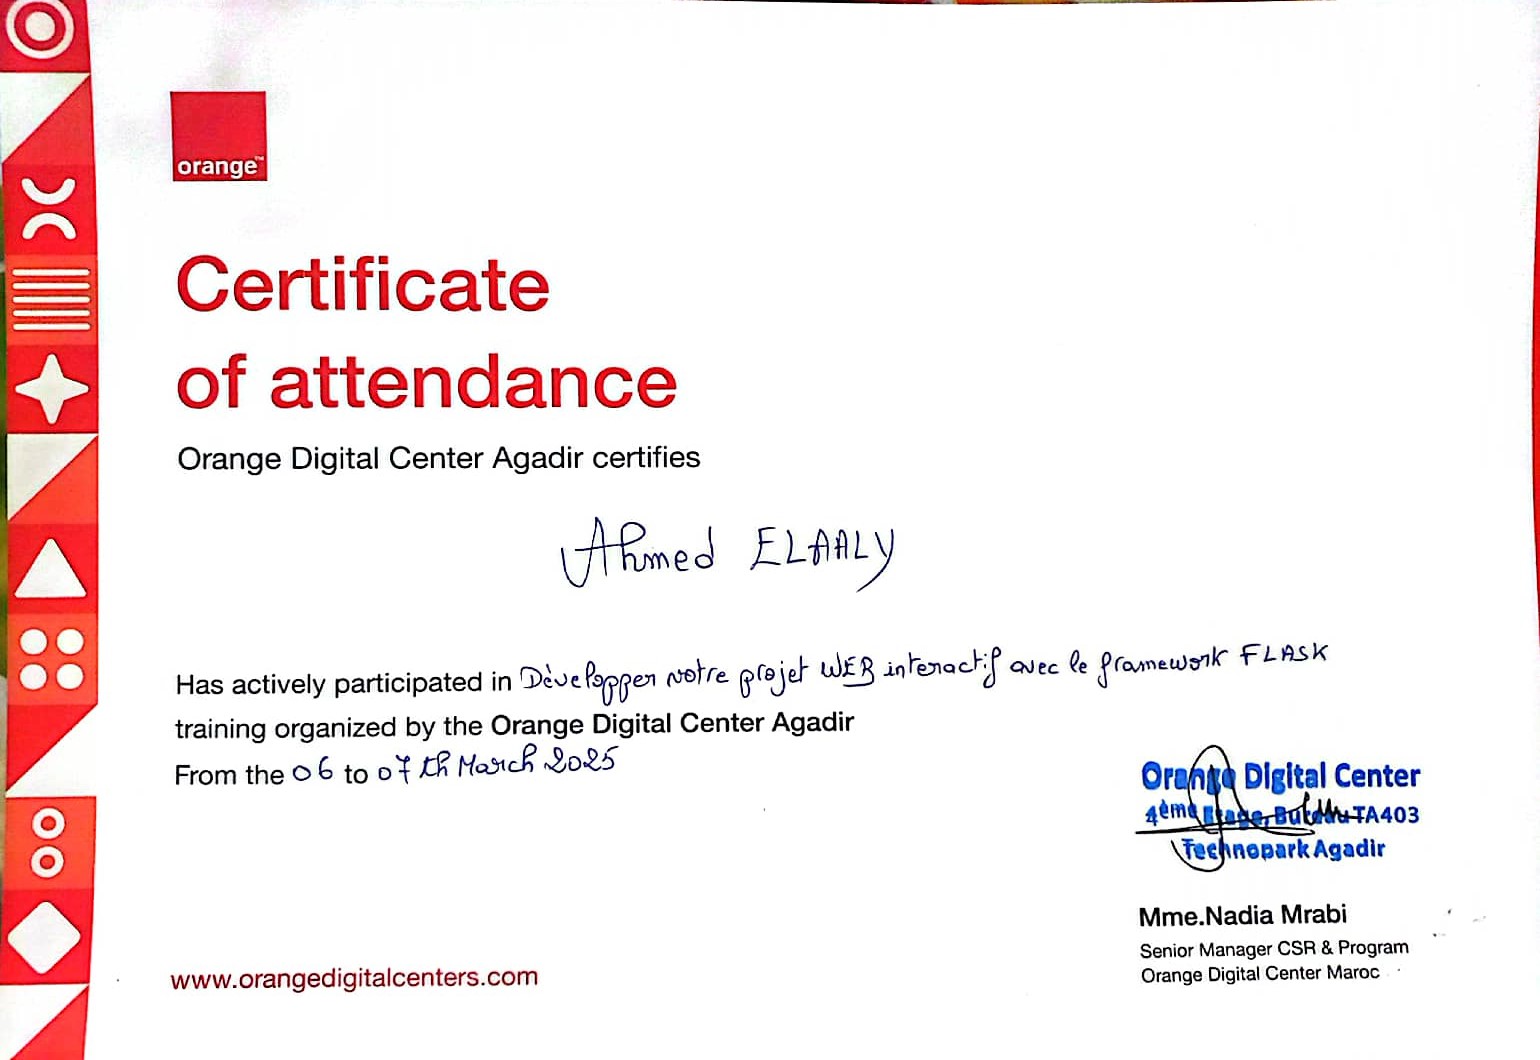 orange™
Certificate
of attendance
Orange Digital Center Agadir certifies
Ahmed ELAALY
Has actively participated in Dèvelopper votre projet WEB interactif avec le framework FLASK
training organized by the Orange Digital Center Agadir
From the 06 to 07th March 2025
Orange Digital Center
4ème Etage, Bureau TA403
Technopark Agadir
Mme.Nadia Mrabi
Senior Manager CSR & Program
Orange Digital Center Maroc
www.orangedigitalcenters.com